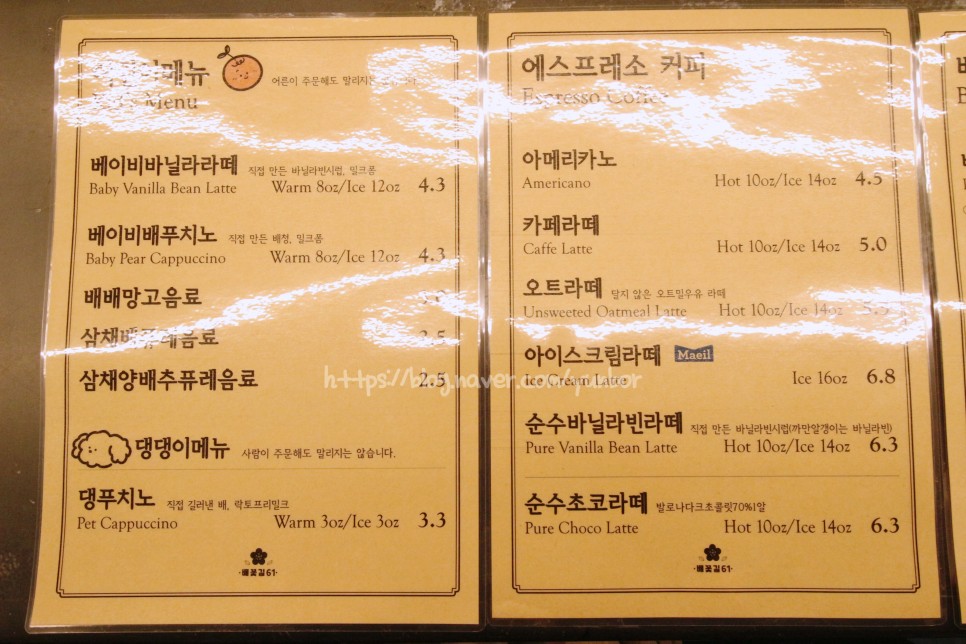 메뉴
어른이 주문해도 말리지는
Menu
베이비바닐라라떼 직접 만든 바닐라빈시럽, 밀크폼
Baby Vanilla Bean Latte Warm 8oz/Ice 12oz 4.3
베이비배푸치노 직접 만든 배청, 밀크폼
Baby Pear Cappuccino Warm 8oz/Ice 12oz 4.3
배배망고음료
삼채배퓨레음료 2.5
삼채양배추퓨레음료 2.5
댕댕이메뉴 사람이 주문해도 말리지는 않습니다.
댕푸치노 직접 길러낸 배, 락토프리밀크
Pet Cappuccino Warm 3oz/Ice 3oz 3.3
·배꽃길61·
에스프레소 커피
Espresso Coffee
아메리카노
Americano Hot 10oz/Ice 14oz 4.5
카페라떼
Caffe Latte Hot 10oz/Ice 14oz 5.0
오트라떼 달지 않은 오트밀우유 라떼
Unsweeted Oatmeal Latte Hot 10oz/Ice 14oz 5.5
아이스크림라떼 Maeil
Ice Cream Latte Ice 16oz 6.8
순수바닐라빈라떼 직접 만든 바닐라빈시럽(까만알갱이는 바닐라빈)
Pure Vanilla Bean Latte Hot 10oz/Ice 14oz 6.3
순수초코라떼 발로나다크초콜릿70%1알
Pure Choco Latte Hot 10oz/Ice 14oz 6.3
·배꽃길61·